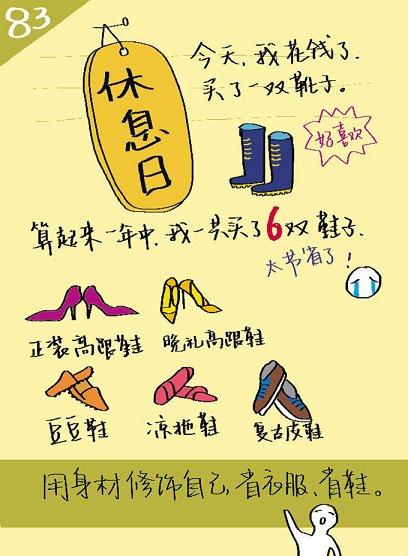 83
休息日
今天,我花钱了.
买了一双靴子。
好喜欢
算起来一年中,我一共买了6双鞋子.
太节省了!
正装高跟鞋
晚礼高跟鞋
豆豆鞋
凉拖鞋
复古皮鞋
用身材修饰自己,省衣服、省鞋。